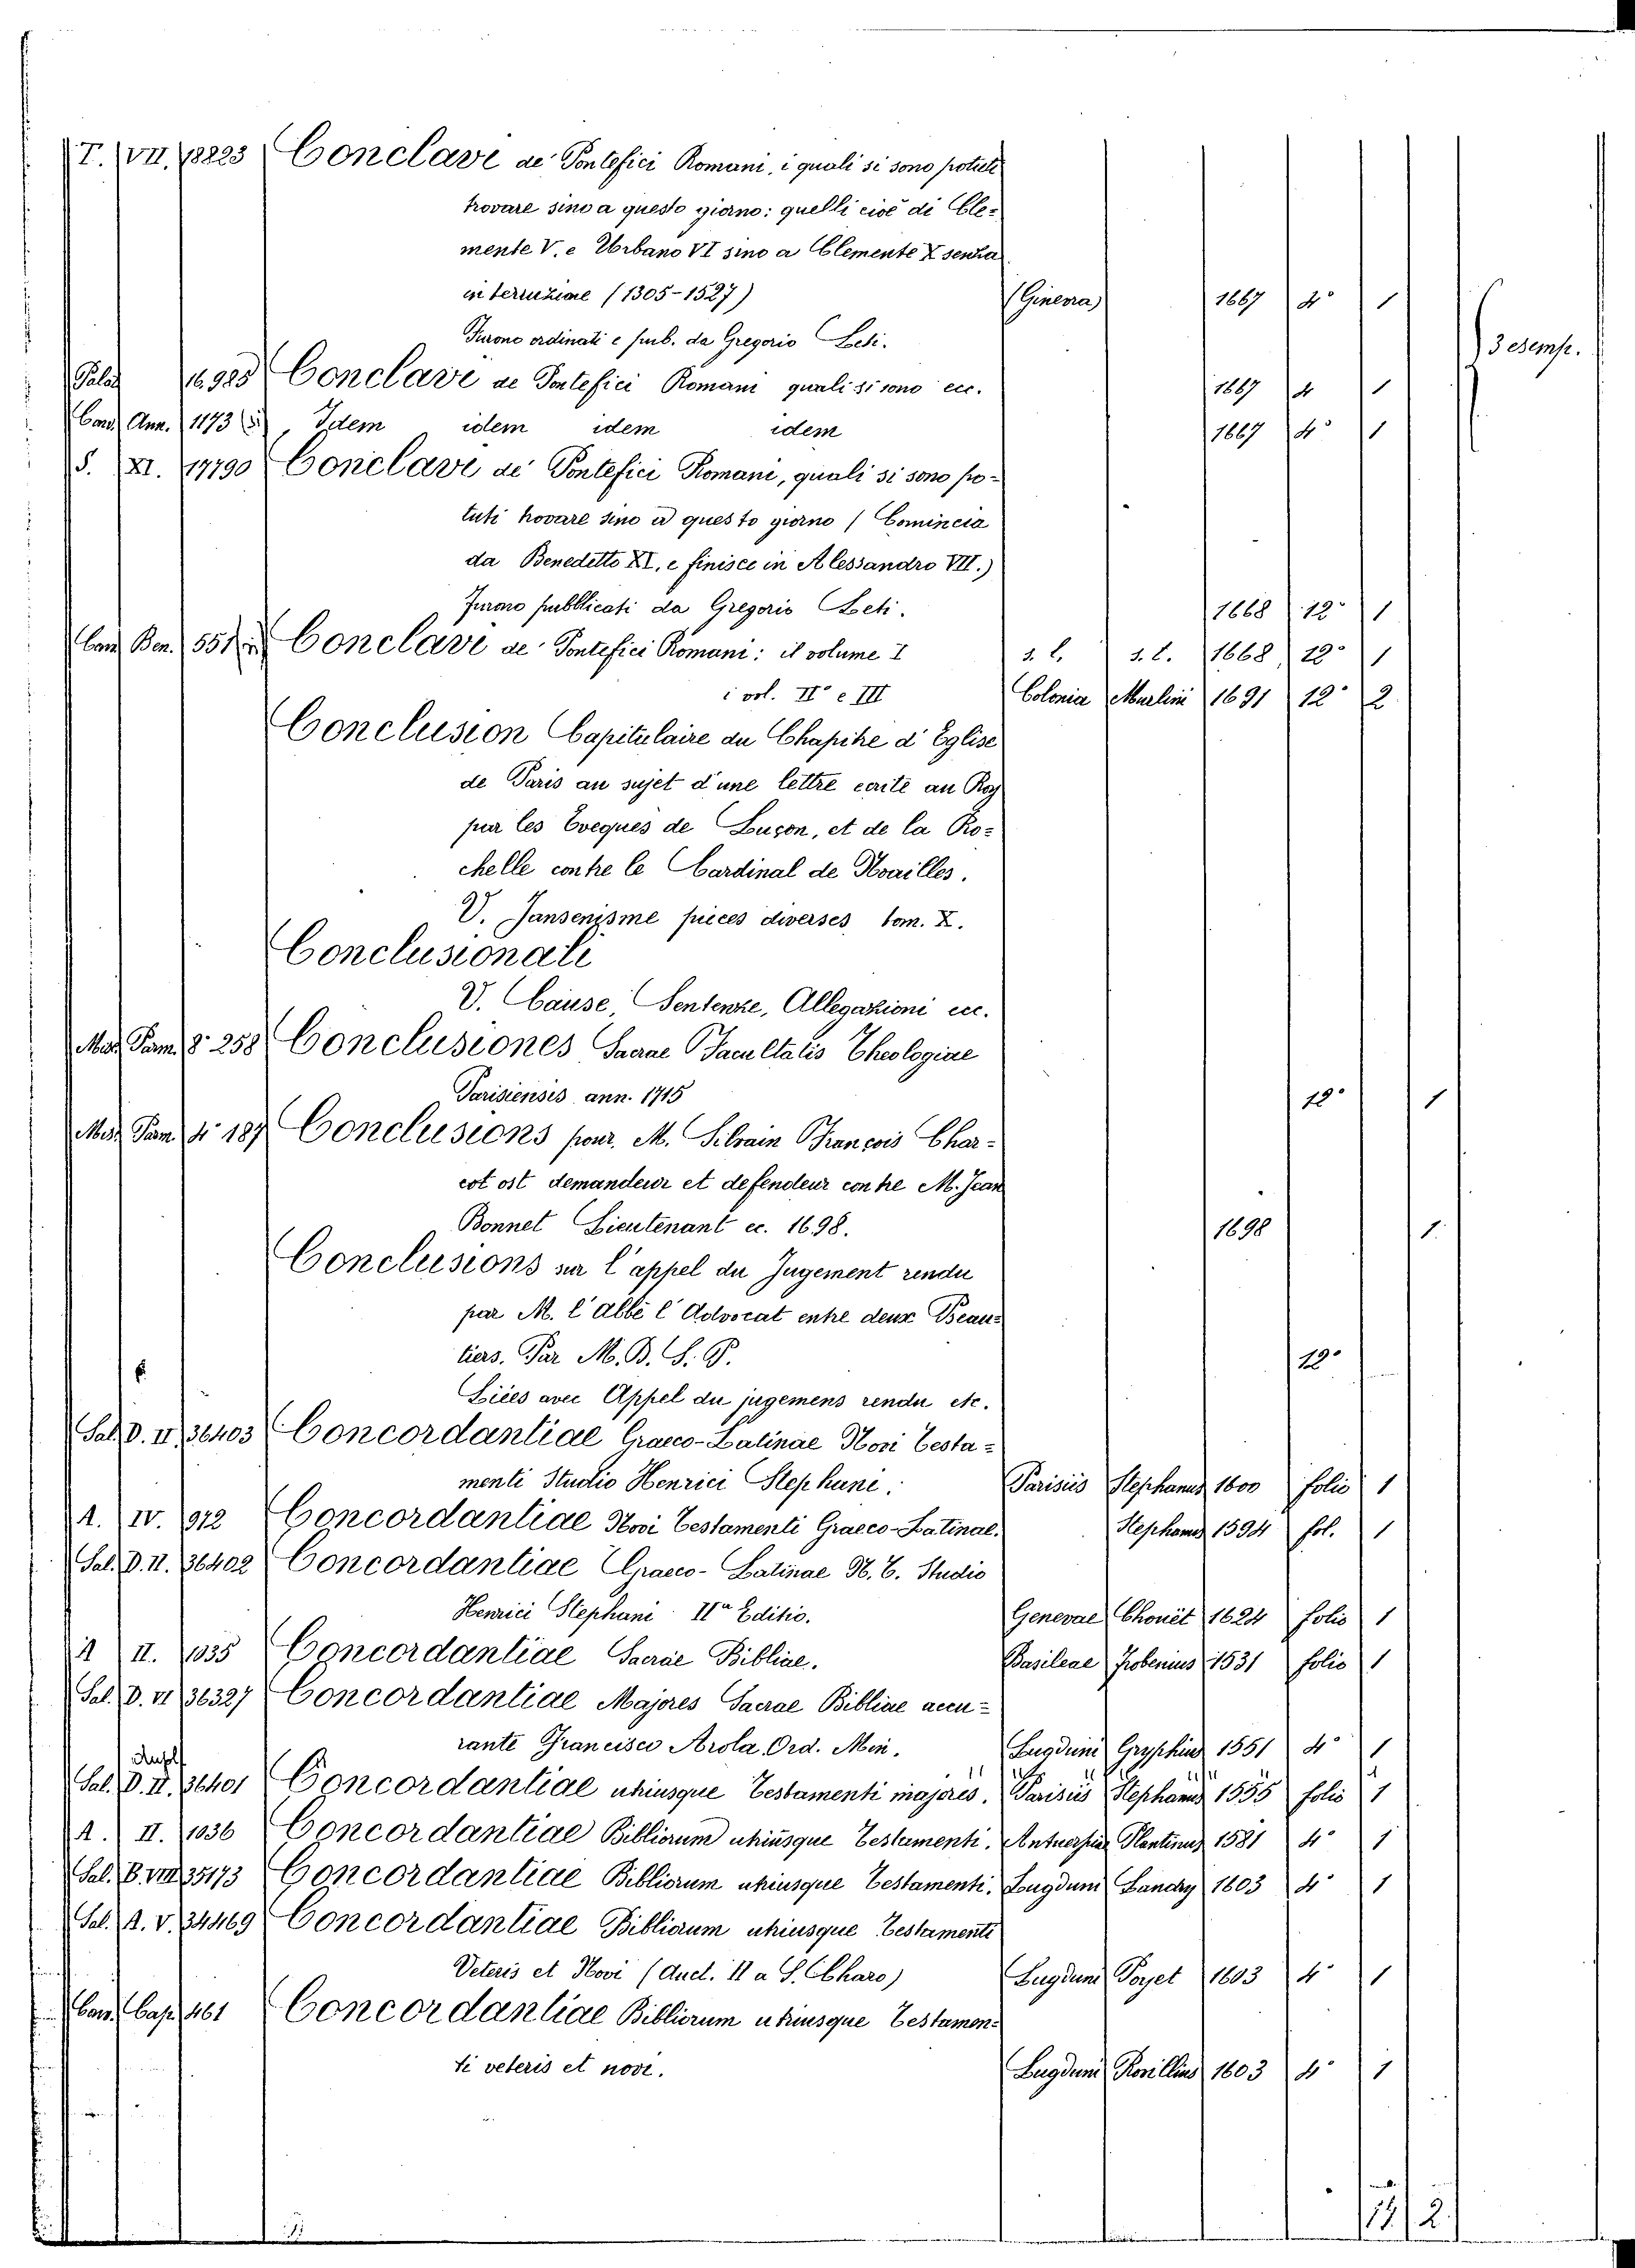 T. VII. 18223 Conclave de' Pontefici Romani, i quali si sono potuti
trovare sino a questo giorno: quelli cioè di Cle=
mente V. e Urbano VI sino a Clemente X senza
interruzione (1305-1527) (Ginevra) 1667 4° 1
Furono ordinati e pub. da Gregorio Leti.
3 esemp.
Palat 16.985 Conclavi de Pontefici Romani quali si sono ecc. 1667 4 1
Cons. Ann. 1173 Idem idem idem idem 1667 4° 1
S. XI. 17790 Conclavi de' Pontefici Romani, quali si sono po=
tuti trovare sino a questo giorno (Comincia
da Benedetto XI, e finisce in Alessandro VII.)
Furono pubblicati da Gregorio Leti. 1668 12° 1
Cons. Ben. 551 Conclavi de' Pontefici Romani: il volume I s. l. s. t. 1668 12° 1
i vol. II° e III Colonia Marlini 1691 12° 2
Conclusion Capitulaire du Chapitre d'Eglise
de Paris au sujet d'une lettre ecrite au Roy
par les Eveques de Luçon, et de la Ro=
chelle contre le Cardinal de Noailles.
V. Jansenisme pieces diverses tom. X.
Conclusionali
V. Cause, Sentenze, Allegazioni ecc.
Mis. Parm. 8° 258 Conclusiones Sacrae Facultatis Theologiae
Parisiensis ann. 1715 12° 1
Mis. Parm. 4° 187 Conclusions pour M. Silvain François Char=
cot ost demandeur et defendeur contre M. Jean
Bonnet Lieutenant ec. 1698. 1698 1
Conclusions sur l'appel du Jugement rendu
par M. l'Abbé l'Advocat entre deux Beau=
tiers. Par M. B. S. P. 12°
Liées avec Appel du jugemens rendu etc.
Sal. D. II 36403 Concordantiae Graeco-Latinae Novi Testa=
menti Studio Henrici Stephani. Parisiis Stephanus 1600 folio 1
A. IV. 912 Concordantiae Novi Testamenti Graeco-Latinae. Stephanus 1594 fol. 1
Sal. D. II. 36402 Concordantiae Graeco-Latinae N. T. Studio
Henrici Stephani IIa Editio. Genevae Chouët 1624 folio 1
A II. 1035 Concordantiae Sacrae Bibliae. Basileae Frobenius 1531 folio 1
Sal. D. VI 36327 Concordantiae Majores Sacrae Bibliae accu=
rante Francisco Arola Ord. Min. Lugduni Gryphius 1551 4° 1
Sal. D. II. 36401 Concordantiae utriusque Testamenti majores. Parisiis Stephanus 1555 folio 1
A. II. 1036 Concordantiae Bibliorum utriusque Testamenti. Antuerpiae Plantinus 1581 4° 1
Sal. B. VIII 35173 Concordantiae Bibliorum utriusque Testamenti. Lugduni Landry 1603 4° 1
Sal. A. V. 34469 Concordantiae Bibliorum utriusque Testamenti
Veteris et Novi (Auct. H a S. Charo) Lugduni Poyet 1603 4° 1
Cons. Cap. 461 Concordantiae Bibliorum utriusque Testamen=
ti veteris et novi. Lugduni Rovillius 1603 4° 1